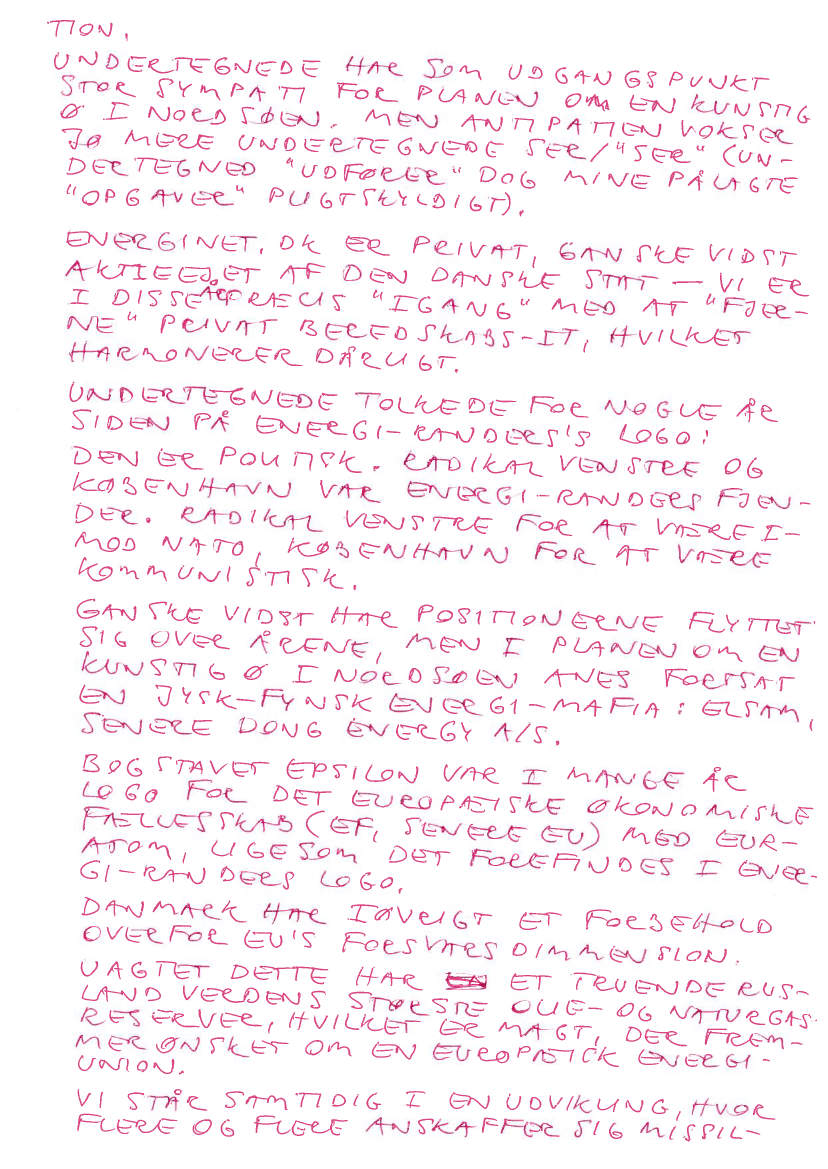 TION.
UNDERTEGNEDE HAR SOM UDGANGSPUNKT
STOR SYMPATI FOR PLANEN OM EN KUNSTIG
Ø I NORDSØEN. MEN ANTIPATIEN VOKSER
JO MERE UNDERTEGNEDE SER/"SER" (UN-
DERTEGNED "UDFØRER" DOG MINE PÅLAGTE
"OPGAVER" PLIGTSKYLDIGT).
ENERGINET.DK ER PRIVAT, GANSKE VIDST
AKTIEEJET AF DEN DANSKE STAT — VI ER
I DISSE ÅR PRÆCIS "IGANG" MED AT "FJER-
NE" PRIVAT BEREDSKABS-IT, HVILKET
HARMONERER DÅRLIGT.
UNDERTEGNEDE TOLKEDE FOR NOGLE ÅR
SIDEN PÅ ENERGI-RANDERS'S LOGO:
DEN ER POLITISK. RADIKAL VENSTRE OG
KØBENHAVN VAR ENERGI-RANDERS FJEN-
DER. RADIKAL VENSTRE FOR AT VÆRE I-
MOD NATO, KØBENHAVN FOR AT VÆRE
KOMMUNISTISK.
GANSKE VIDST HAR POSITIONERNE FLYTTET
SIG OVER ÅRENE, MEN I PLANEN OM EN
KUNSTIG Ø I NORDSØEN ANES FORTSAT
EN JYSK-FYNSK ENERGI-MAFIA: ELSAM,
SENERE DONG ENERGY A/S.
BOGSTAVET EPSILON VAR I MANGE ÅR
LOGO FOR DET EUROPÆISKE ØKONOMISKE
FÆLLESSKAB (EF, SENERE EU) MED EUR-
ATOM, LIGESOM DET FOREFINDES I ENER-
GI-RANDERS LOGO.
DANMARK HAR IØVRIGT ET FORBEHOLD
OVERFOR EU'S FORSVARSDIMMENSION.
UAGTET DETTE HAR ET TRUENDE RUS-
LAND VERDENS STØRSTE OLIE- OG NATURGAS-
RESERVER, HVILKET ER MAGT, DER FREM-
MER ØNSKET OM EN EUROPÆICK ENERGI-
UNION.
VI STÅR SAMTIDIG I EN UDVIKLING, HVOR
FLERE OG FLERE ANSKAFFER SIG MISSIL-